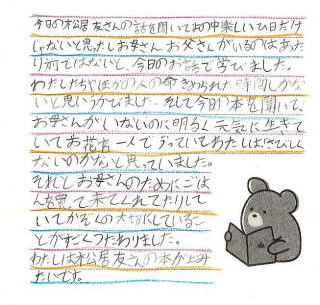 今日の松居友さんの話を聞いて世の中楽しいひ日だけ
じゃないと思ったしお母さんお父さんがいるのはあた
り前ではないと、今日のお話で学びました。
わたしたちやほかの人の命きめられた時間しかな
いと思いうかびました。そして今日本を聞いて、
お母さんがいないのに明るく元気に生きて
いてお花を一人でうっていてわたしはさびしく
ないのかなと思っていました。
それとお母さんのためにごは
んを買って来てくれてたりして
いてかぞくの大切にしているこ
とがすごくつたわりました。
わたしは松居友さんの本がよみ
たいです。